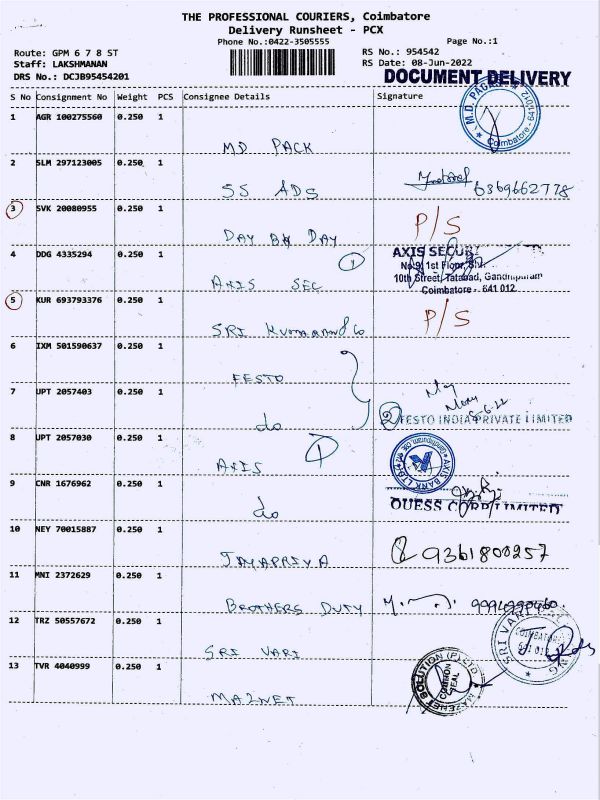 THE PROFESSIONAL COURIERS, Coimbatore
Delivery Runsheet - PCX
Phone No.:0422-3505555
Page No.:1
Route: GPM 6 7 8 ST
RS No.: 954542
Staff: LAKSHMANAN
RS Date: 08-Jun-2022
DRS No.: DCJB95454201
DOCUMENT DELIVERY
S No Consignment No Weight PCS Consignee Details Signature
1 AGR 100275560 0.250 1
M.D. PACK Coimbatore - 641012
MD PACK
2 SLM 297123005 0.250 1
SS ADS 6369662778
3 SVK 20080955 0.250 1
P/S
DAY DAY
4 DDG 4335294 0.250 1
AXIS SECURI
No.9, 1st Floor,
10th Street, Tatabad, Gandhipuram
AXIS SEC 1
Coimbatore - 641 012
5 KUR 693793376 0.250 1
P/S
SRI KUMARAN & Co
6 IXM 501590637 0.250 1
FESTO
7 UPT 2057403 0.250 1
do 2 FESTO INDIA PRIVATE LIMITED
8 UPT 2057030 0.250 1
AXIS 1
AXIS BANK LTD
9 CNR 1676962 0.250 1
do QUESS CORP LIMITED
10 NEY 70015887 0.250 1
9361800257
JAYAPRIYA
11 MNI 2372629 0.250 1
BROTHERS DUTY
12 TRZ 50557672 0.250 1
SRI VARI
COIMBATORE
641 012
SRI VARI
13 TVR 4040999 0.250 1
MAZENET SOLUTION (P) LTD
COMMON
SEAL
MAZNET